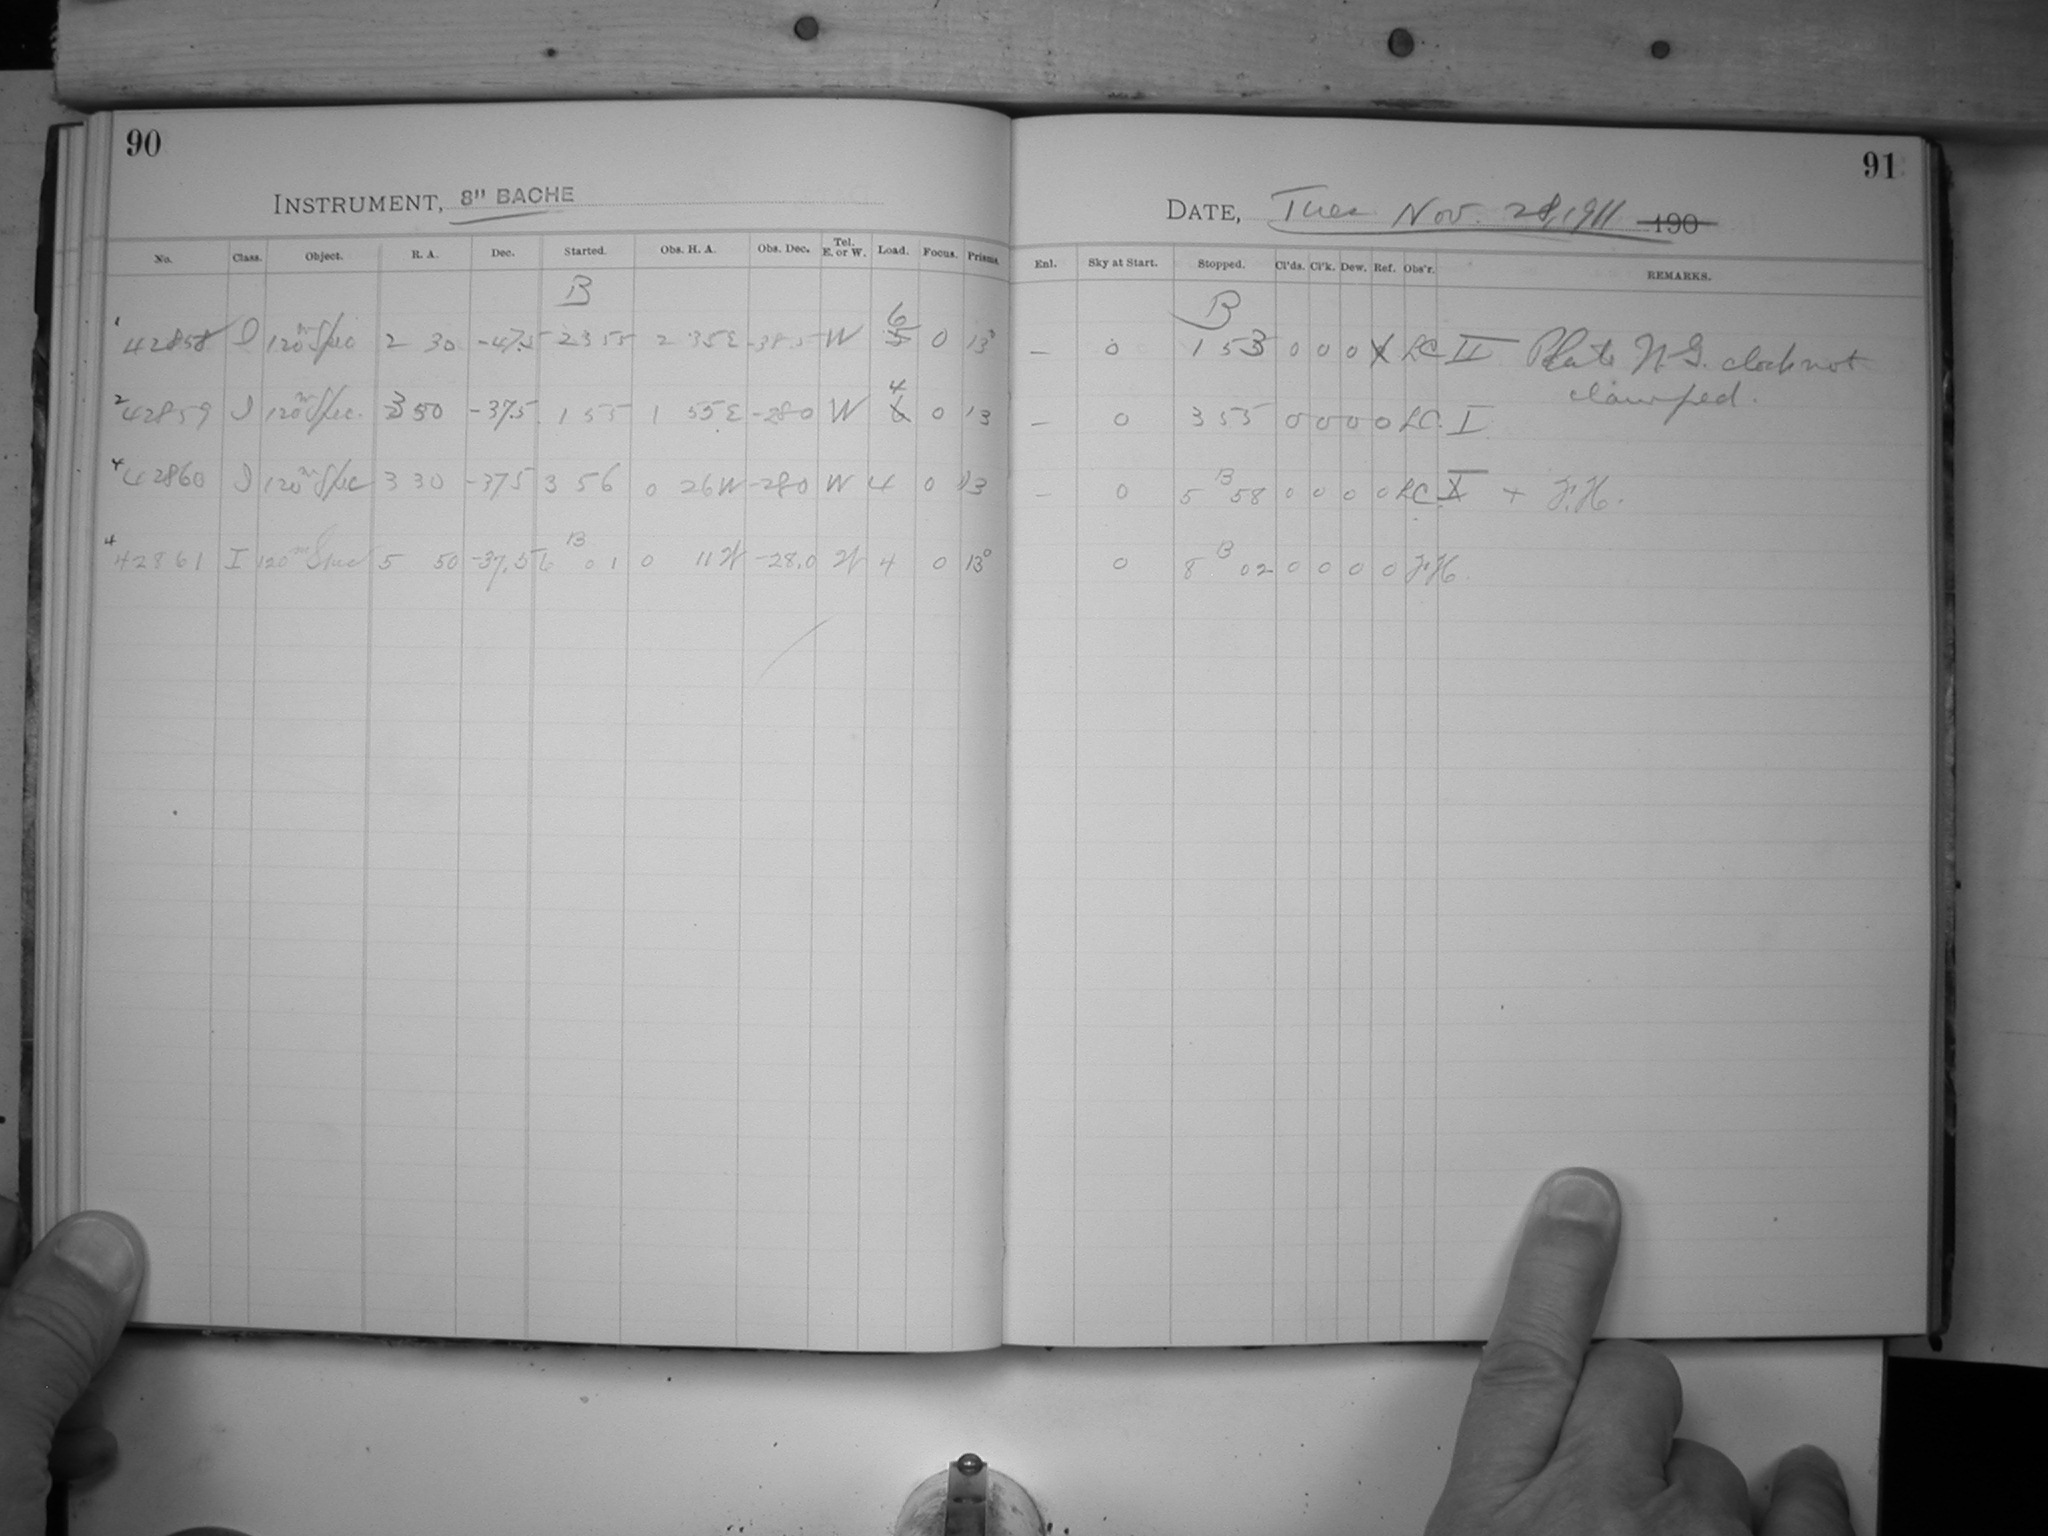 90
INSTRUMENT, 8" BACHE
No. Class. Object. R. A. Dec. Started. Obs. H. A. Obs. Dec. Tel. E. or W. Load. Focus. Prisms.
B
6
1 42858 I 120m Spec 2 30 -47.5 23 55 2 35 E -38.5 W 5 0 13°
4
2 42859 I 120m Spec. 3 50 -37.5 1 55 1 55 E -28 0 W 6 0 13
4 42860 I 120m Spec 3 30 -37 5 3 56 0 26 W -28 0 W 4 0 13
B
4 42861 I 120m Spec 5 50 -37.5 6 01 0 11 W -28.0 W 4 0 13°
91
DATE, Tues Nov. 28, 1911 190
Enl. Sky at Start. Stopped. Cl'ds. Cl'k. Dew. Ref. Obs'r. REMARKS.
B
— 0 1 53 0 0 0 LC II Plate N.G. clock not
clamped.
— 0 3 55 0 0 0 0 LC. I
B
— 0 5 58 0 0 0 0 LC X + F.H.
B
0 8 02 0 0 0 0 F.H.